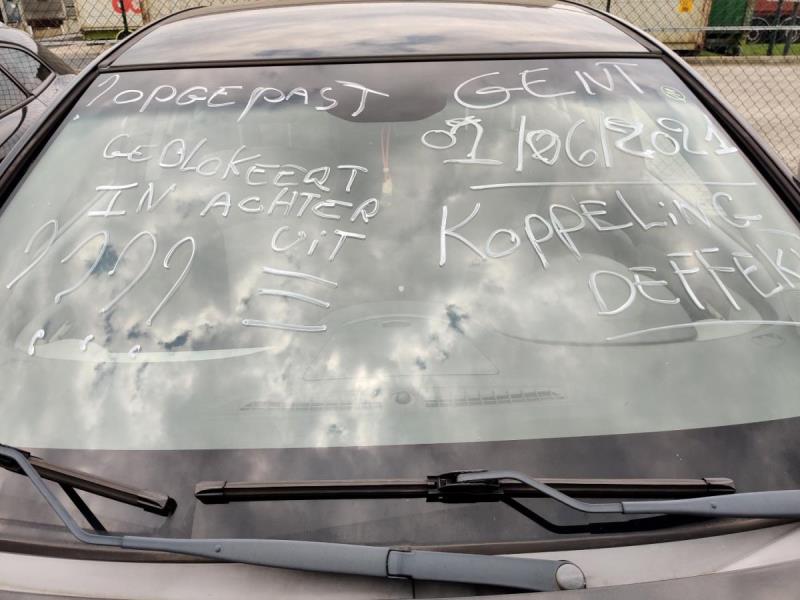 ?OPGEPAST
GEBLOKEERT
IN ACHTER
UIT
? ? ? ?
GENT
01/06/2021
KOPPELING
DEFFEK